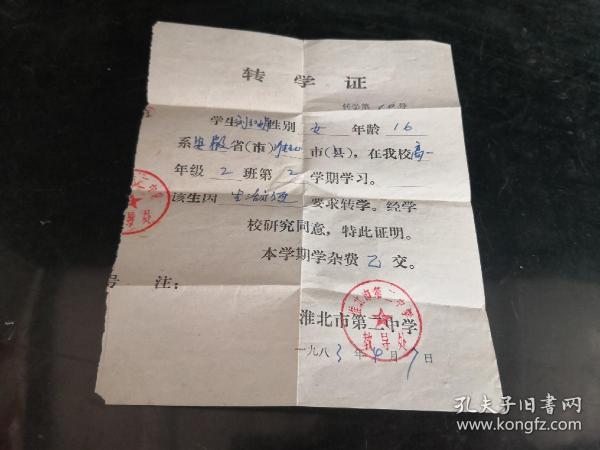 转学证
转学第 号
学生 性别 女 年龄 16
系安徽省(市)淮北市(县),在我校高一
年级 2 班第 2 学期学习。
该生因 生活 要求转学。经学
校研究同意,特此证明。
本学期学杂费 已 交。
号 注:
淮北市第二中学
一九八3年4月7日
淮北市第二中学
教导处
二中学
教导处
孔夫子旧书网
www.kongfz.com